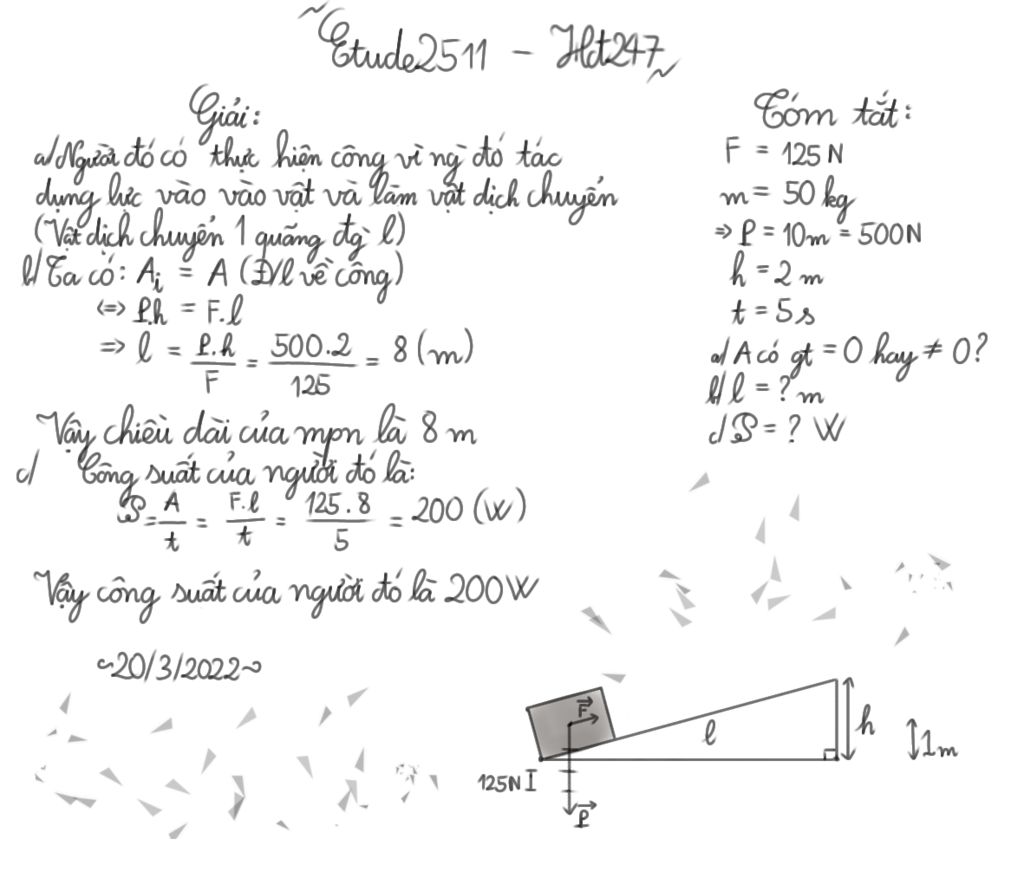 ~ Etude2511 - Hdt247 ~
Giải:
a/ Người đó có thực hiện công vì ng` đó tác
dụng lực vào vào vật và làm vật dịch chuyển
(Vật dịch chuyển 1 quãng đg` l)
b/ Ta có: Aᵢ = A (Đ/l về công)
<=> P.h = F.l
=> l = P.h / F = 500.2 / 125 = 8 (m)
Vậy chiều dài của mpn là 8 m
c/ Công suất của người đó là:
𝒫 = A / t = F.l / t = 125.8 / 5 = 200 (W)
Vậy công suất của người đó là 200W
~20/3/2022~
Tóm tắt:
F = 125 N
m = 50 kg
=> P = 10m = 500N
h = 2 m
t = 5 s
a/ A có gt = 0 hay ≠ 0?
b/ l = ? m
c/ 𝒫 = ? W
F
l
h
1m
125N
P